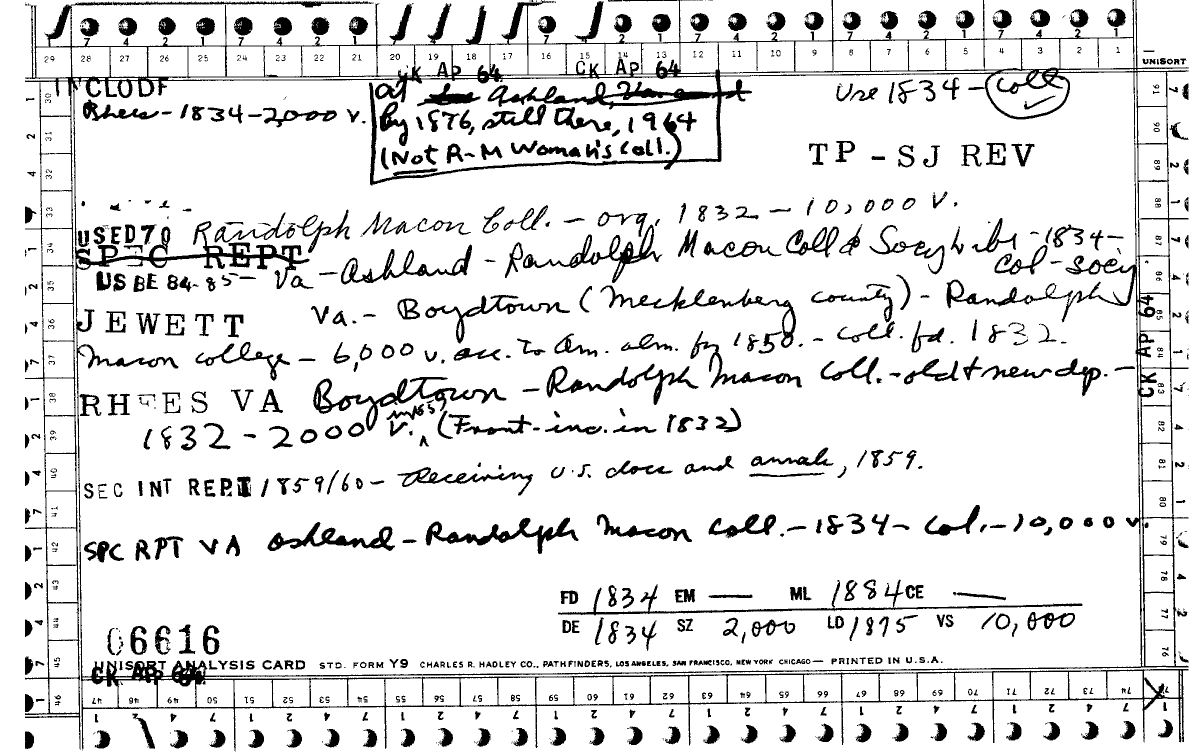 7 4 2 1 7 4 2 1 7 2 1 7 4 2 1 7 4 2 1 7 4 2 1
29 28 27 26 25 24 23 22 21 20 19 18 17 16 15 14 13 12 11 10 9 8 7 6 5 4 3 2 1
UNISORT
CK AP 64 CK AP 64
INCLUDE
Rhees - 1834 - 2,000 v.
at Ashland, Va.
by 1876, still there, 1964
(Not R-M Woman's Coll.)
Use 1834 - Coll
TP - SJ REV
USED 70 Randolph Macon Coll. - org. 1832 - 10,000 v.
SPEC REPT
US BE 84-85 - Va - Ashland - Randolph Macon Coll & Socy Libs - 1834 -
Col - Socy
JEWETT Va. - Boydtown (Mecklenberg county) - Randolph
Macon college - 6,000 v. acc. to Am. alm. for 1850. - Coll. fd. 1832.
RHEES VA Boydtown - Randolph Macon Coll. - old & new dep. -
1832 - 2000 v. (Front - inc. in 1832)
SEC INT REPT 1859/60 - Receiving U.S. docs and annals, 1859.
SPC RPT VA Ashland - Randolph Macon Coll. - 1834 - Col. - 10,000 v.
CK AP 64
FD 1834 EM — ML 1884 CE —
DE 1834 SZ 2,000 LD 1875 VS 10,000
06616
UNISORT ANALYSIS CARD STD. FORM Y9 CHARLES R. HADLEY CO., PATHFINDERS, LOS ANGELES, SAN FRANCISCO, NEW YORK CHICAGO — PRINTED IN U.S.A.
CK APP 64
47 48 49 50 51 52 53 54 55 56 57 58 59 60 61 62 63 64 65 66 67 68 69 70 71 72 73 74